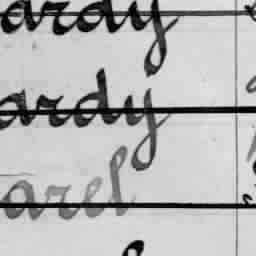 ardy
ardy
arel